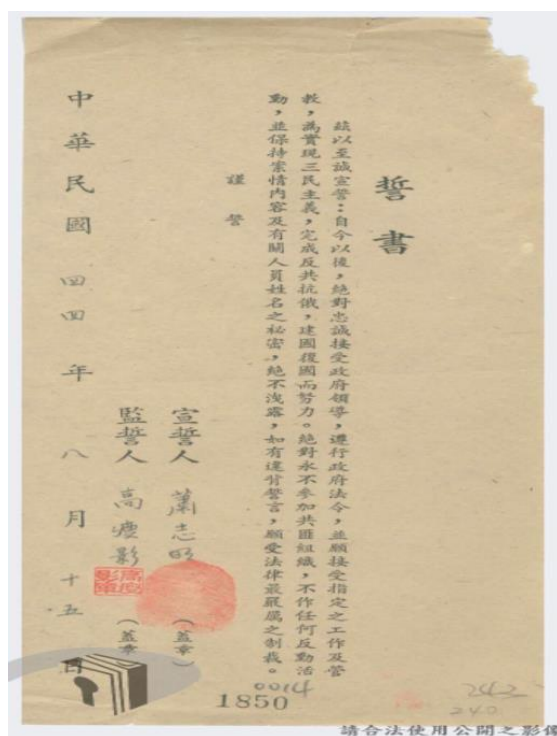 誓書
茲以至誠宣誓：自今以後，絕對忠誠接受政府領導，遵行政府法令，並願接受指定之工作及管
教，為實現三民主義，完成反共抗俄，建國復國而努力。絕對永不參加共匪組織，不作任何反動活
動，並保持案情內容及有關人員姓名之秘密，絕不洩露，如有違背誓言，願受法律最嚴厲之制裁。
謹誓
宣誓人 蕭志明 （蓋章）
監誓人 高慶影 （蓋章）
中華民國四四年八月十五日
0014
1850
242
240
請合法使用公開之影像